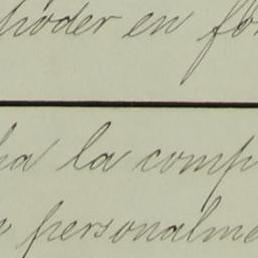 poder en fo
ha la comp
personalme